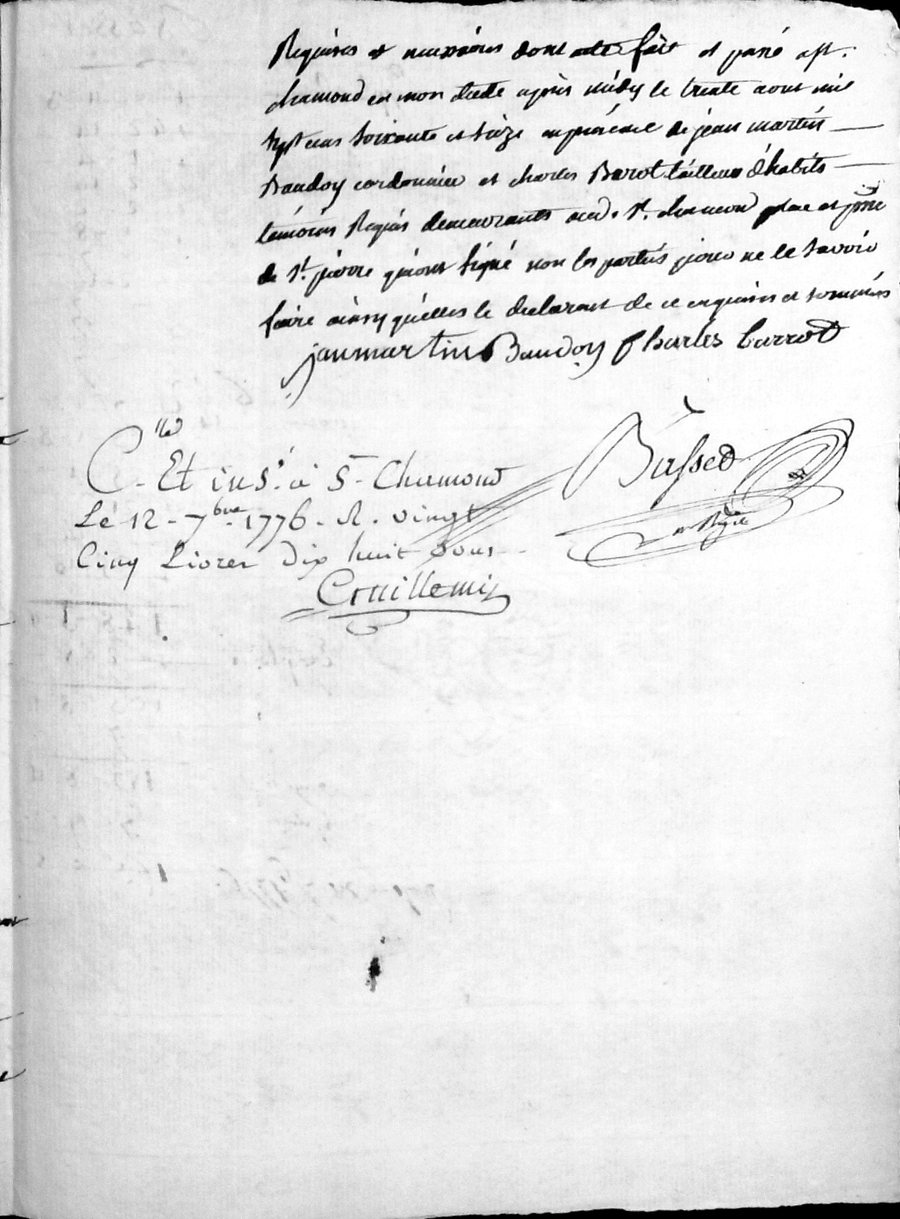 Requises et necessaires dont acte fait et passé a st.
chamond en mon étude après midy le trente aout mil
sept cens soixante et seize en présence de jean martin
Baudoy cordonnier et charles Barot tailleur d'habits
témoins Requis demeurants aud. st. chamond place et psse
de st. pierre qui ont signé non les parties pour ne le savoir
faire ainsy qu'elles le declarent de ce enquises et sommées
jan martin Baudoy Charles barrot
Basset
C. lé Et ins.é à St Chamond
Le 12 - 7bre 1776 - R. vingt
Cinq Livres Dix huit sous